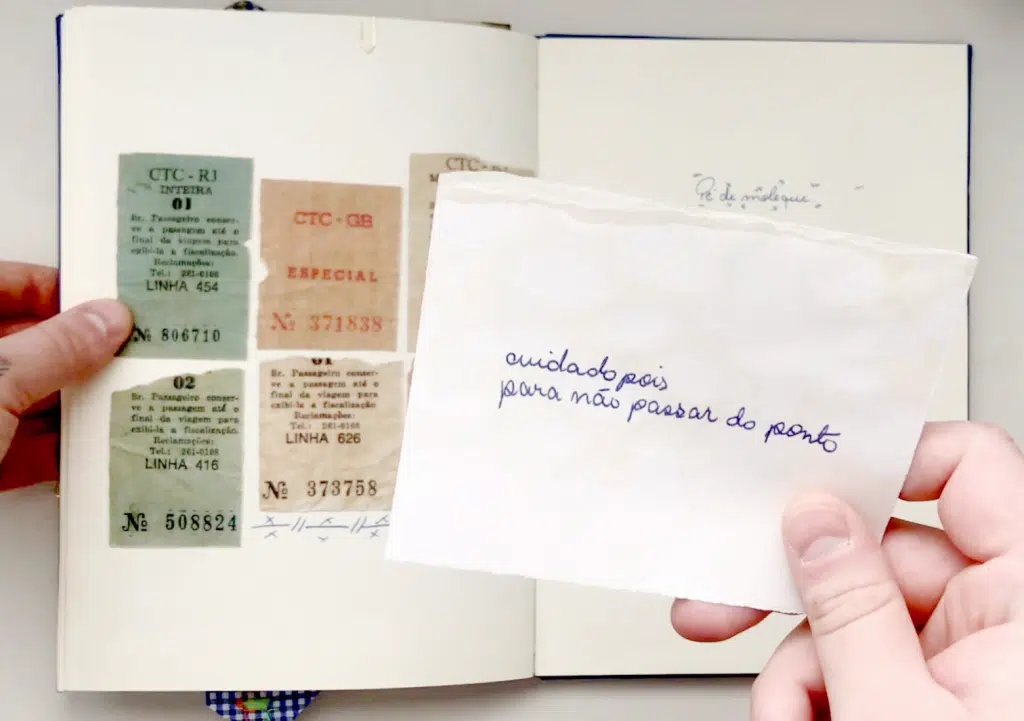 CTC - RJ
INTEIRA
01
Sr. Passageiro conser-
ve a passagem até o
final da viagem para
exibi-la a fiscalização.
Reclamações:
Tel.: 261-0108
LINHA 454
Nº 806710
CTC - GB
ESPECIAL
Nº 371838
CTC -
02
Sr. Passageiro conser-
ve a passagem até o
final da viagem para
exibi-la a fiscalização.
Reclamações:
Tel.: 261-0108
LINHA 416
Nº 508824
01
Sr. Passageiro conser-
ve a passagem até o
final da viagem para
exibi-la a fiscalização
Reclamações:
Tel.: 261-0108
LINHA 626
Nº 373758
"Pé de moleque"
cuidado pois
para não passar do ponto